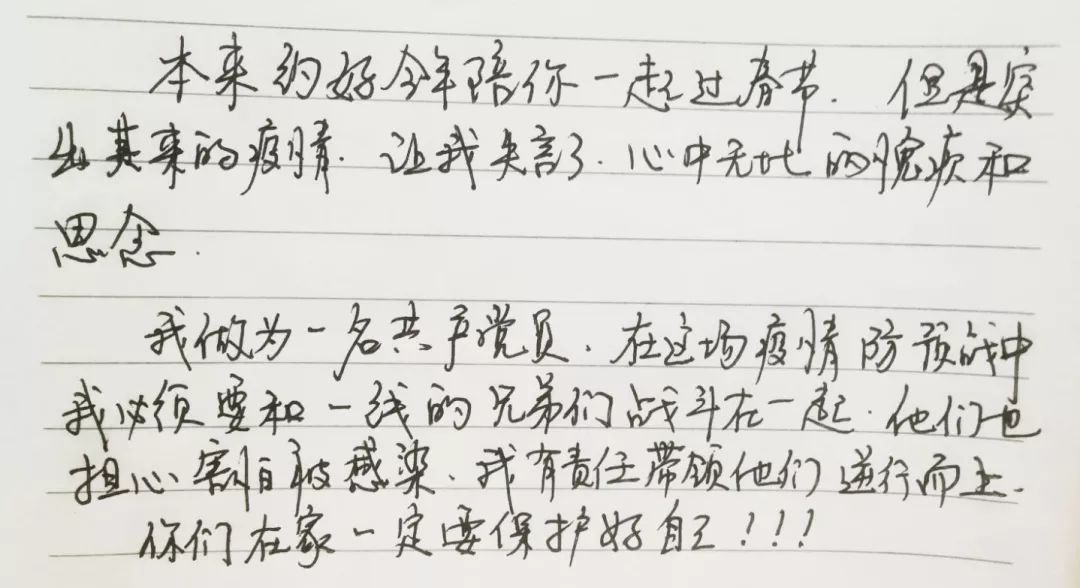 本来约好今年陪你一起过春节.但是突
出其来的疫情.让我失言了.心中无比的愧疚和
思念.
我做为一名共产党员.在这场疫情防预战中
我必须要和一线的兄弟们战斗在一起.他们也
担心害怕被感染.我有责任带领他们逆行而上.
你们在家一定要保护好自己!!!